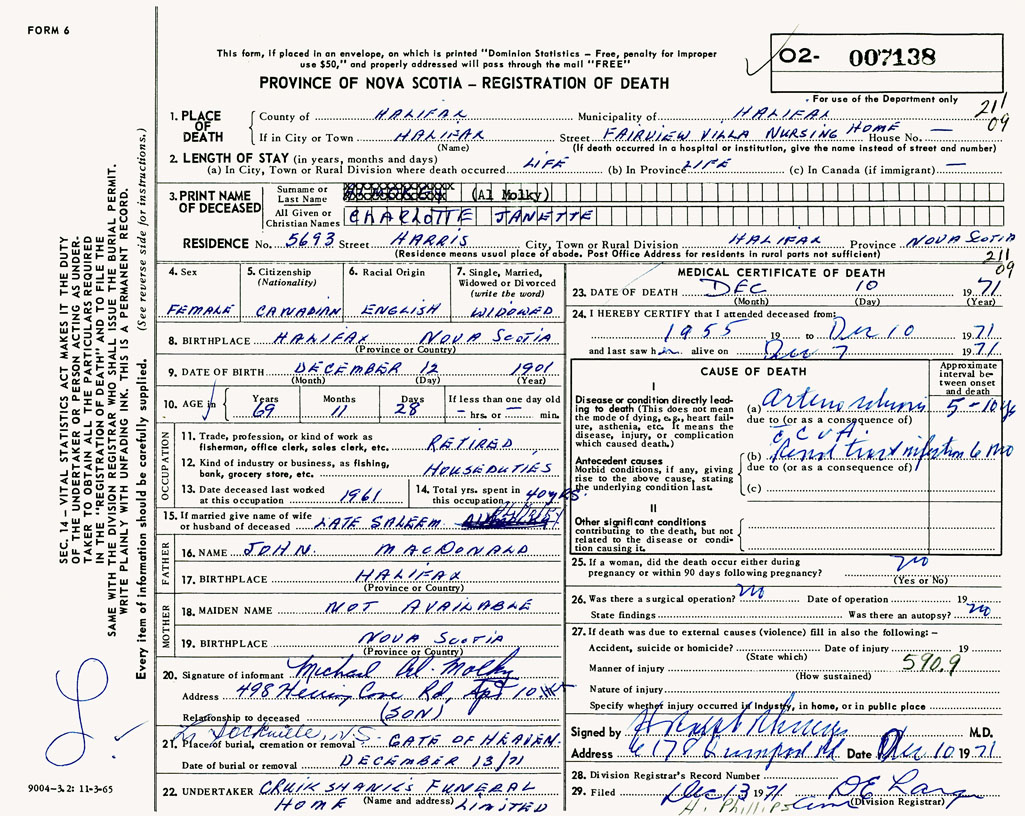 FORM 6
This form, if placed in an envelope, on which is printed "Dominion Statistics – Free, penalty for improper
use $50," and properly addressed will pass through the mail "FREE"
PROVINCE OF NOVA SCOTIA – REGISTRATION OF DEATH
O2- 007138
For use of the Department only
211
09
1. PLACE OF DEATH
County of HALIFAX Municipality of HALIFAX
If in City or Town HALIFAX Street FAIRVIEW VILLA NURSING HOME House No. —
(Name) (If death occurred in a hospital or institution, give the name instead of street and number)
2. LENGTH OF STAY (in years, months and days)
(a) In City, Town or Rural Division where death occurred LIFE (b) In Province LIFE (c) In Canada (if immigrant) —
3. PRINT NAME OF DECEASED
Surname or Last Name (Al Molky)
All Given or Christian Names CHARLOTTE JANETTE
RESIDENCE No. 5693 Street HARRIS City, Town or Rural Division HALIFAX Province NOVA SCOTIA
(Residence means usual place of abode. Post Office Address for residents in rural parts not sufficient)
211
09
SEC. 14 – VITAL STATISTICS ACT MAKES IT THE DUTY
OF THE UNDERTAKER OR PERSON ACTING AS UNDER-
TAKER TO OBTAIN ALL THE PARTICULARS REQUIRED
IN THE "REGISTRATION OF DEATH" AND TO FILE THE
SAME WITH THE DIVISION REGISTRAR WHO SHALL ISSUE THE BURIAL PERMIT.
WRITE PLAINLY WITH UNFADING INK. THIS IS A PERMANENT RECORD.
Every item of information should be carefully supplied. (See reverse side for instructions.)
4. Sex
FEMALE
5. Citizenship
(Nationality)
CANADIAN
6. Racial Origin
ENGLISH
7. Single, Married,
Widowed or Divorced
(write the word)
WIDOWED
8. BIRTHPLACE HALIFAX NOVA SCOTIA
(Province or Country)
9. DATE OF BIRTH DECEMBER 12 1901
(Month) (Day) (Year)
10. AGE in
Years Months Days If less than one day old
69 11 28 – hrs. or – min.
OCCUPATION
11. Trade, profession, or kind of work as
fisherman, office clerk, sales clerk, etc. RETIRED
12. Kind of industry or business, as fishing,
bank, grocery store, etc. HOUSEDUTIES
13. Date deceased last worked
at this occupation 1961
14. Total yrs. spent in
this occupation 40 YRS.
15. If married give name of wife
or husband of deceased LATE SALEEM
FATHER
16. NAME JOHN MACDONALD
17. BIRTHPLACE HALIFAX
(Province or Country)
MOTHER
18. MAIDEN NAME NOT AVAILABLE
19. BIRTHPLACE NOVA SCOTIA
(Province or Country)
20. Signature of informant Michael Al. Molky
Address 498 Herring Cove Rd, Apt 10
Relationship to deceased (SON)
Lr Sackville, N.S.
21. Place of burial, cremation or removal GATE OF HEAVEN.
Date of burial or removal DECEMBER 13/71
22. UNDERTAKER CRUIKSHANK'S FUNERAL
HOME (Name and address) LIMITED
9004-3.2: 11-3-65
MEDICAL CERTIFICATE OF DEATH
23. DATE OF DEATH DEC 10 1971
(Month) (Day) (Year)
24. I HEREBY CERTIFY that I attended deceased from:
1955 19 to Dec 10 1971
and last saw her alive on Dec 7 1971
CAUSE OF DEATH
Approximate
interval be-
tween onset
and death
I
Disease or condition directly lead-
ing to death (This does not mean
the mode of dying, e.g., heart fail-
ure, asthenia, etc. It means the
disease, injury, or complication
which caused death.)
(a) 5-10
due to (or as a consequence of)
C C V A.
Antecedent causes
Morbid conditions, if any, giving
rise to the above cause, stating
the underlying condition last.
(b) infection 6 mo
due to (or as a consequence of)
(c)
II
Other significant conditions
contributing to the death, but not
related to the disease or condi-
tion causing it.
25. If a woman, did the death occur either during
pregnancy or within 90 days following pregnancy? no
(Yes or No)
26. Was there a surgical operation? no Date of operation 19
State findings Was there an autopsy? no
27. If death was due to external causes (violence) fill in also the following: –
Accident, suicide or homicide? Date of injury 19
(State which) 590.9
Manner of injury
(How sustained)
Nature of injury
Specify whether injury occurred in industry, in home, or in public place
Signed by M.D.
Address Date Dec 10 1971
28. Division Registrar's Record Number
29. Filed Dec 13 1971
(Division Registrar)
H. Phillips